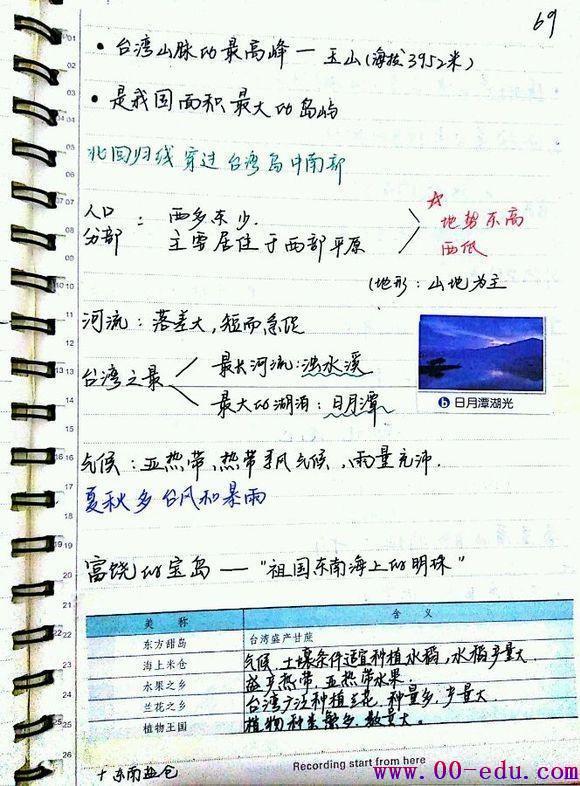 69
• 台湾山脉的最高峰 — 玉山(海拔3952米)
• 是我国面积最大的岛屿
北回归线穿过台湾岛中南部
人口分部 : 西多东少.
主要居住于西部平原
☆ 地势东高西低
(地形: 山地为主
河流: 落差大,短而急促
台湾之最
最长河流: 浊水溪
最大的湖泊: 日月潭
ⓑ 日月潭湖光
气候: 亚热带,热带季风气候,雨量充沛.
夏秋多台风和暴雨
富饶的宝岛 —— "祖国东南海上的明珠"
美 称 含 义
东方甜岛 台湾盛产甘蔗
海上米仓 气候,土壤条件适宜种植水稻,水稻产量大.
水果之乡 盛产热带,亚热带水果.
兰花之乡 台湾广泛种植兰花,种量多,产量大
植物王国 植物种类繁多,数量大.
+ 东南盐仓
Recording start from here
www.00-edu.com
01
02
03
04
05
06
07
08
09
10
11
12
13
14
15
16
17
18
19
20
21
22
23
24
25
26